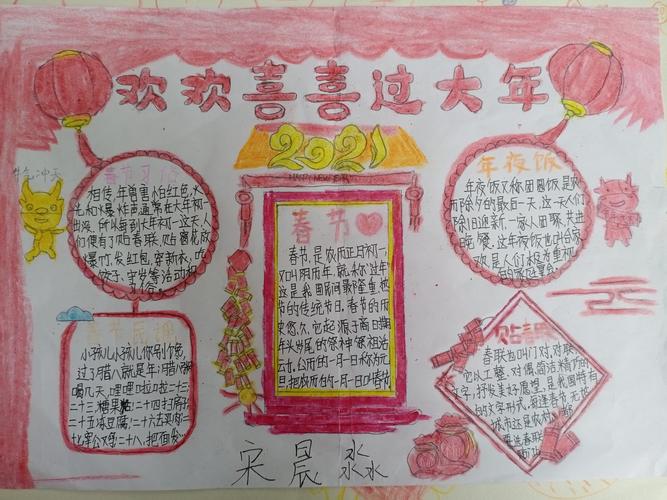 欢欢喜喜过大年
2021
HAPPY NEW YEAR
牛气冲天
春节习俗
相传,年兽害怕红色,火
光和爆炸声,通常在大年初一
出没,所以每到大年初一这天,人
们便有了贴春联、贴窗花,放
爆竹、发红包,穿新衣,吃
饺子,守岁等活动和
习俗。
年夜饭
年夜饭又称团圆饭是农
历除夕的最后一天,这一天人们
除旧迎新,一家人团聚,共进
晚餐。这年夜饭也叫合家
欢,是人们极为重视
的家庭宴会
春节
春节,是农历正月初一,
又叫阴历年,就称"过年"
这是我国民间最隆重,热
节的传统节日。春节的历
史悠久,它起源于商日期
年头岁尾的祭神 祭祖活
云力。公历的一月一日称为元
旦,把农历的一月一日叫春节
春节民谣
小孩儿小孩儿你别馋,
过了腊八就是年,腊八粥
喝几天,哩哩啦啦二十三,
二十三,糖果粘,二十四扫房
二十五冻豆腐,二十六去买肉,二
十七宰公鸡,二十八,把面发
贴春联
春联也叫门对,对联
它以工整、对偶、简洁、精巧的
文字,抒发美好愿望,是我国特有
的文学形式,每逢春节,无论
城市还是农村,
要选春联
宋晨淼